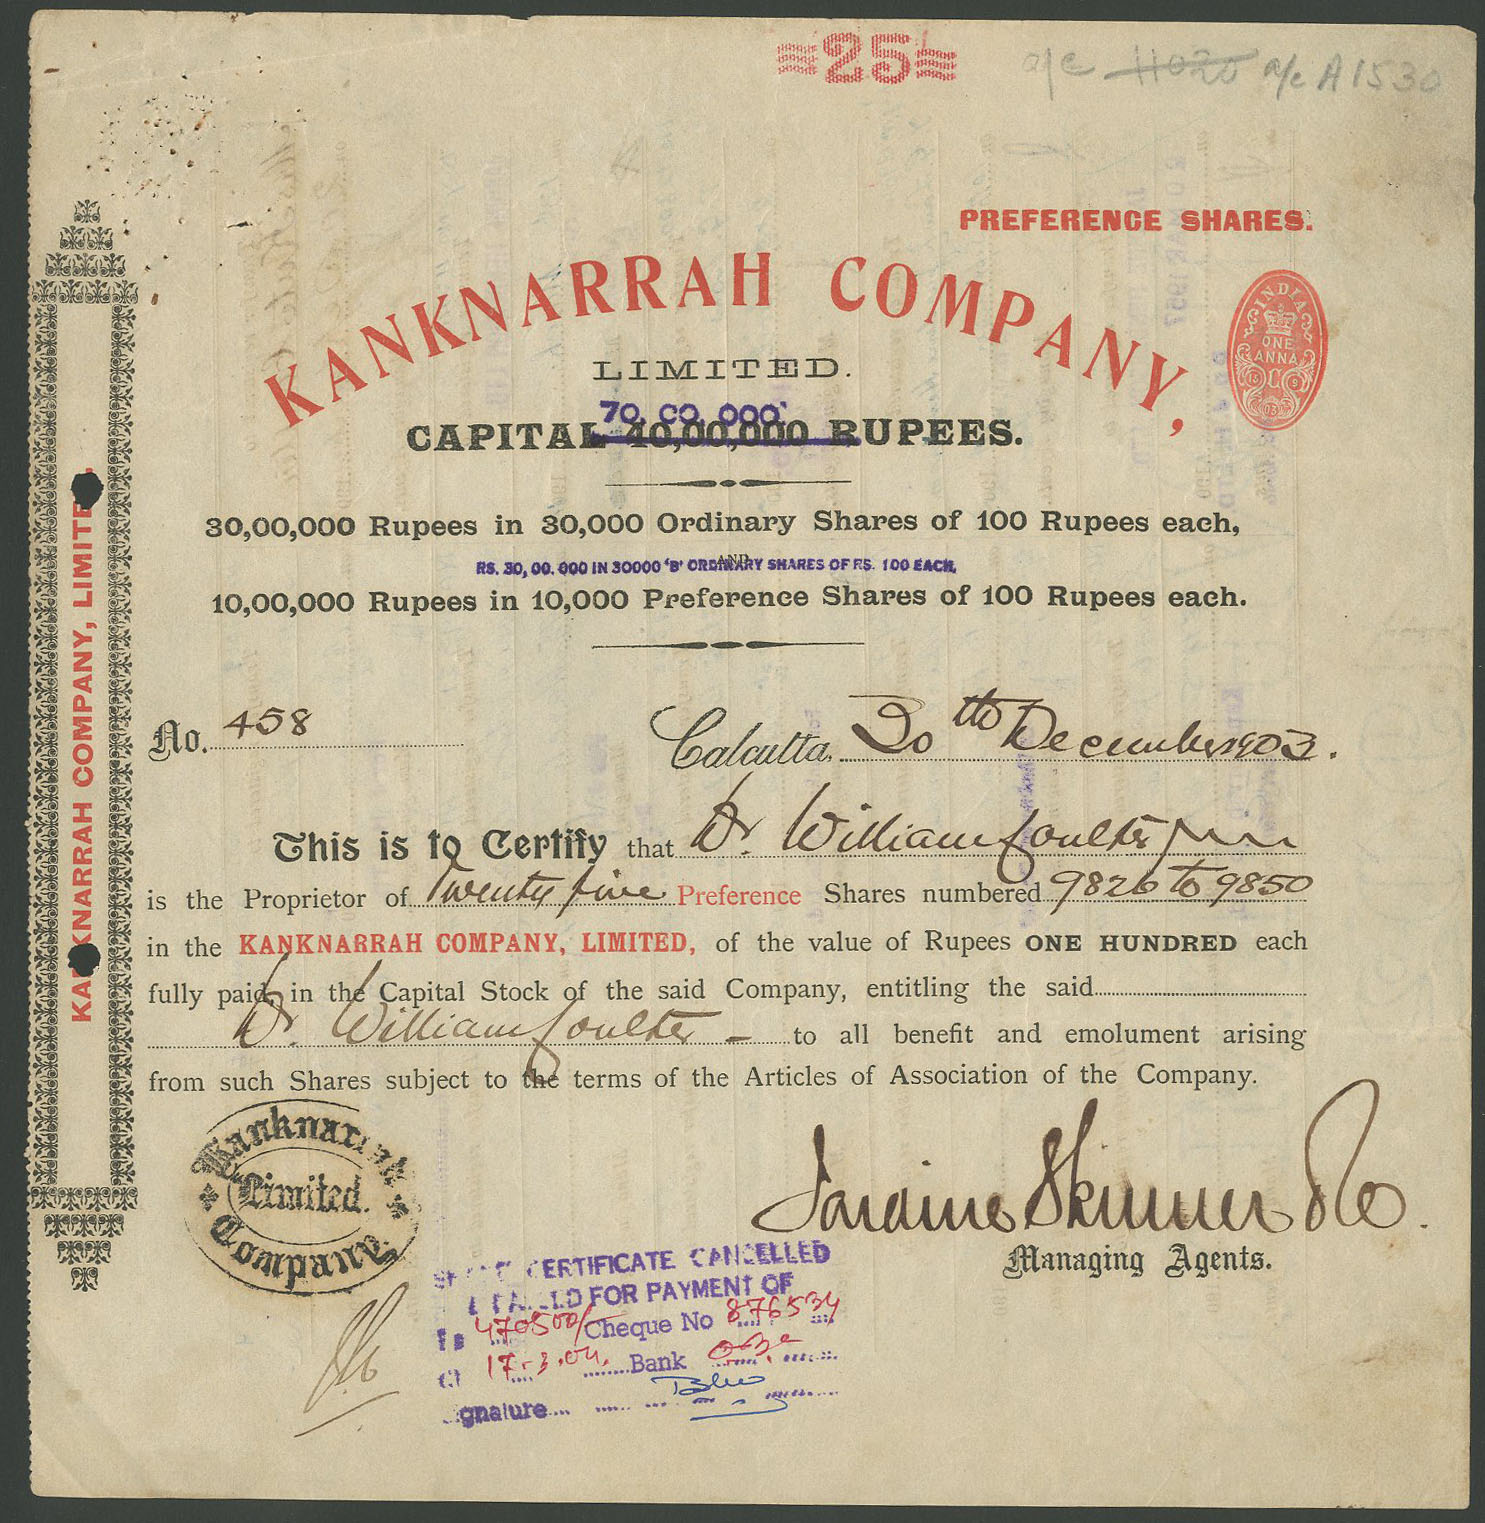 25
a/c 11025 a/c A 1530
PREFERENCE SHARES.
KANKNARRAH COMPANY,
INDIA
ONE
ANNA
LIMITED.
70,00,000
CAPITAL 40,00,000 RUPEES.
30,00,000 Rupees in 30,000 Ordinary Shares of 100 Rupees each,
AND
RS. 30,00,000 IN 30000 'B' ORDINARY SHARES OF RS. 100 EACH,
10,00,000 Rupees in 10,000 Preference Shares of 100 Rupees each.
No. 458
Calcutta, 30th December 1903.
This is to Certify that Dr. William Coulter
is the Proprietor of Twenty five Preference Shares numbered 9826 to 9850
in the KANKNARRAH COMPANY, LIMITED, of the value of Rupees ONE HUNDRED each
fully paid, in the Capital Stock of the said Company, entitling the said
Dr. William Coulter - to all benefit and emolument arising
from such Shares subject to the terms of the Articles of Association of the Company.
Kanknarrah
Limited.
Company
Jardine Skinner & Co.
Managing Agents.
CERTIFICATE CANCELLED
FOR PAYMENT OF
470500/- Cheque No 876534
17.3.04. Bank
gnature
KANKNARRAH COMPANY, LIMITED.